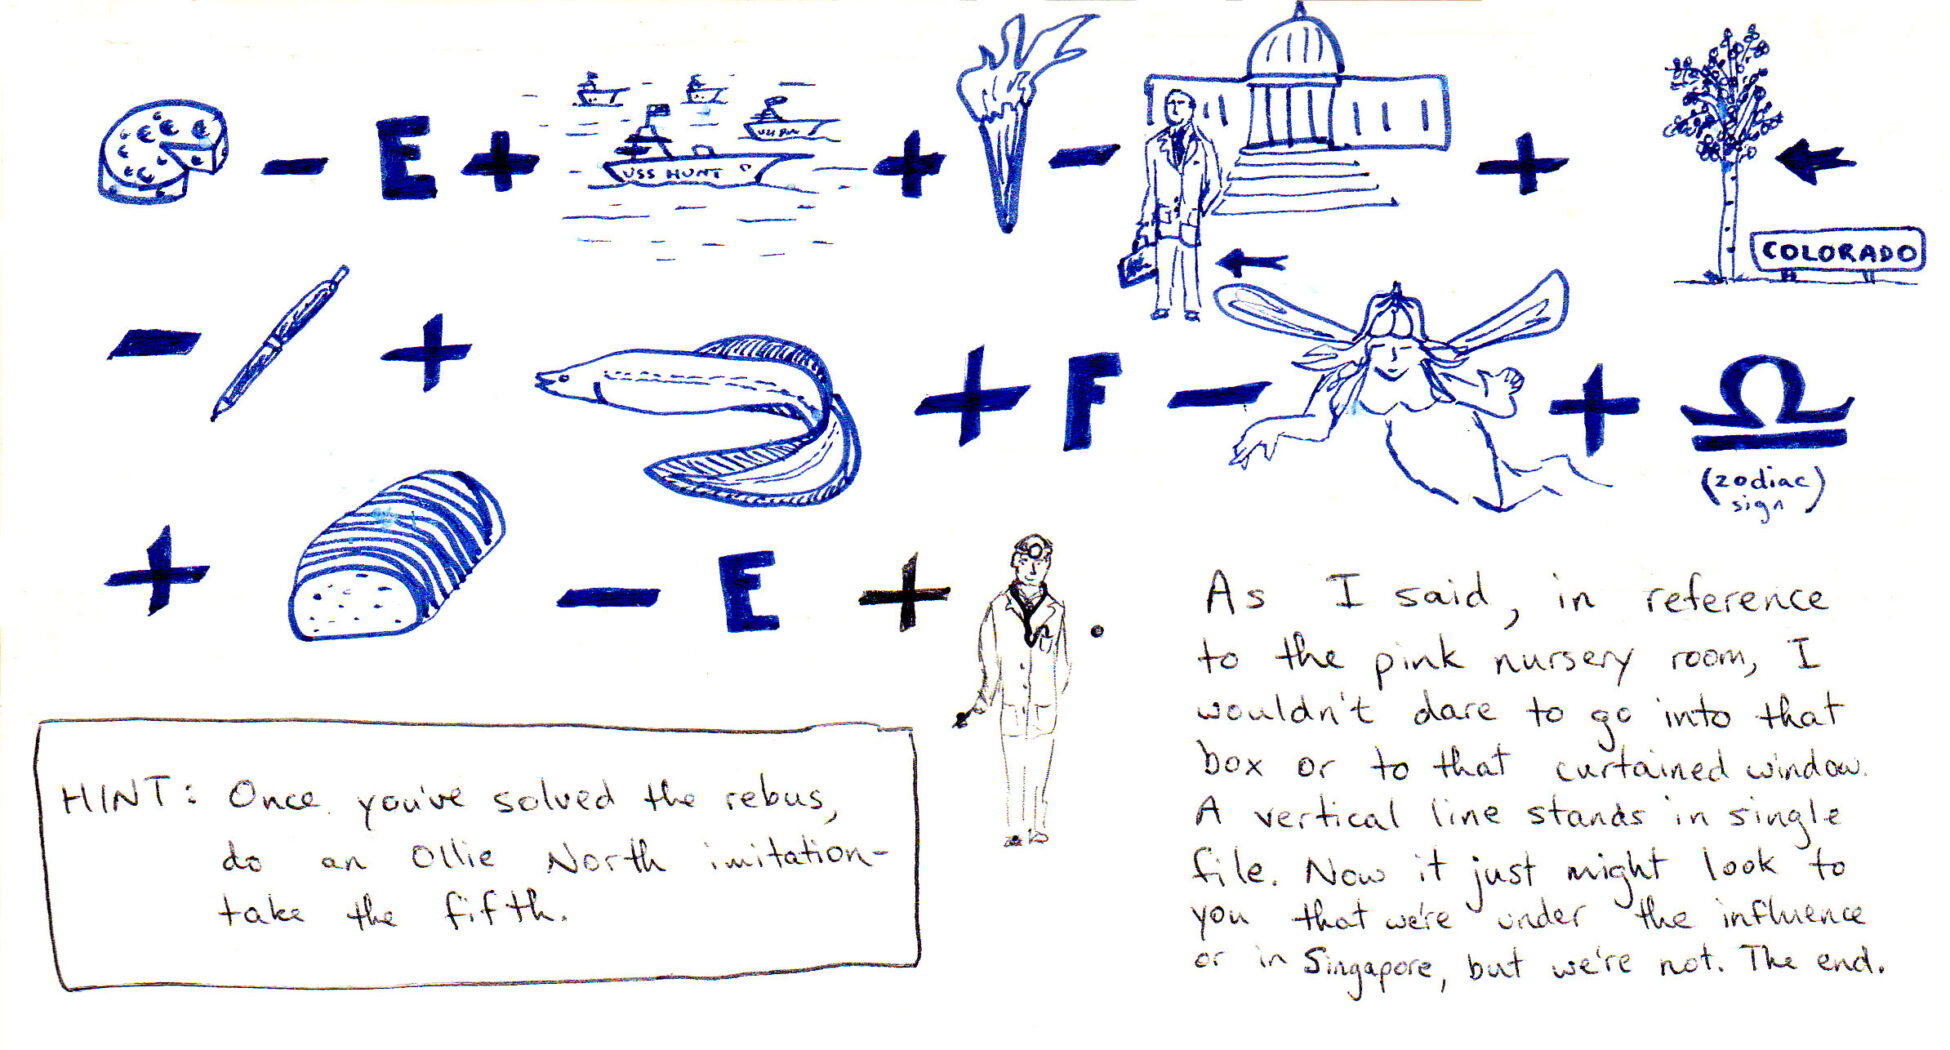 - E + + - +
USS HUNT
COLORADO
- + + F - +
(zodiac
sign)
+ - E + .
As I said, in reference
to the pink nursery room, I
wouldn't dare to go into that
box or to that curtained window.
A vertical line stands in single
file. Now it just might look to
you that we're under the influence
or in Singapore, but we're not. The end.
HINT: Once you've solved the rebus,
do an Ollie North imitation-
take the fifth.